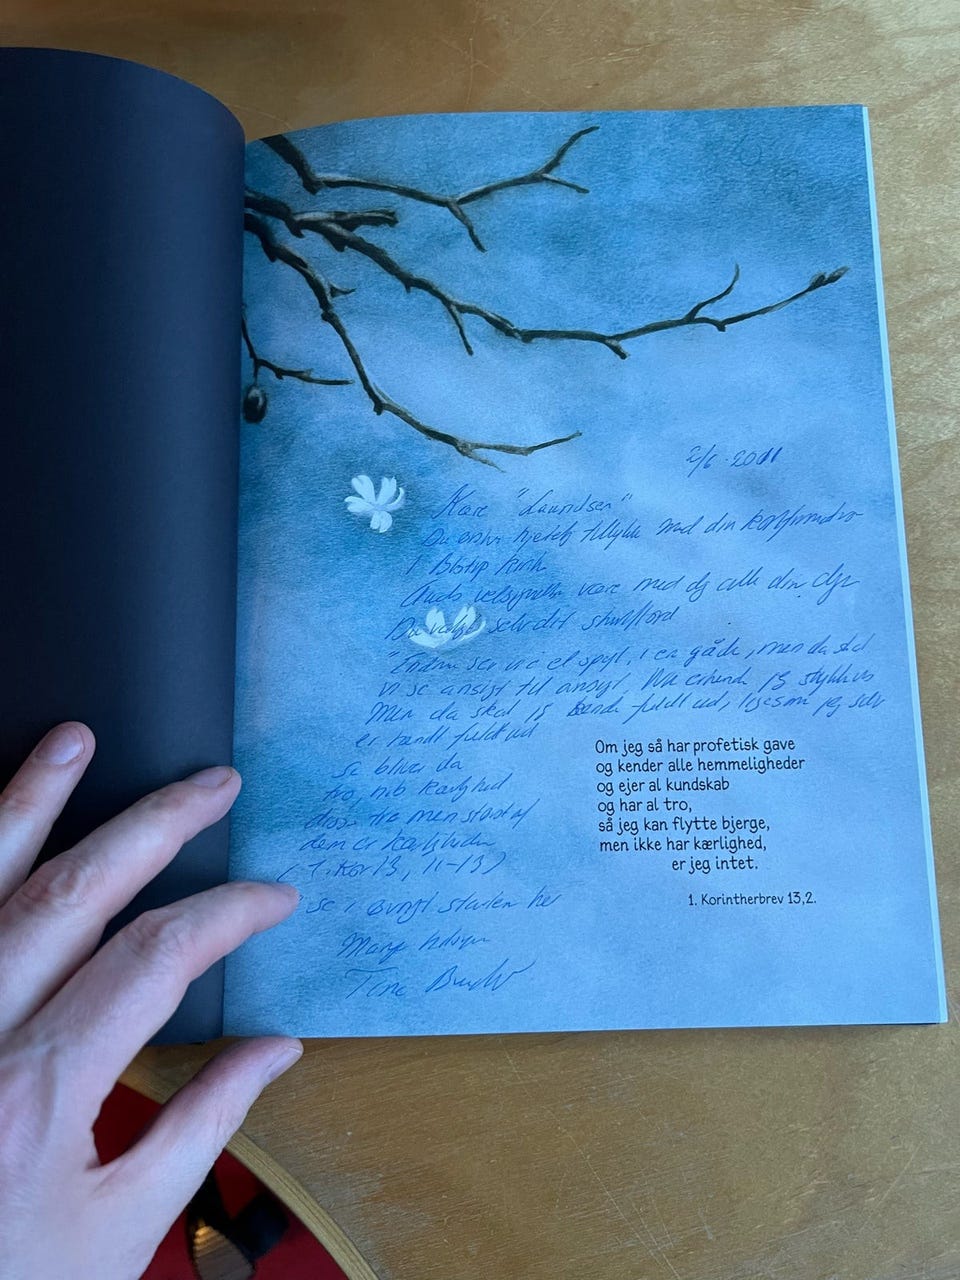 2/6-2001
Kære "Lauridsen"
Du ønskes hjertelig tillykke med din konfirmation
i kirke
Guds velsignelse være med dig alle dine dage
Du valgte selv dit skriftord
"Endnu ser vi i et spejl, i en gåde, men da skal
vi se ansigt til ansigt. Nu erkender jeg stykkevis
men da skal jeg kende fuldt ud, ligesom jeg selv
er kendt fuldt ud
så bliver da
tro, håb kærlighed
disse tre men størst af
dem er kærligheden
(1. Kor 13, 11-13)
se i øvrigt starten her
Mange hilsner
Tine
Om jeg så har profetisk gave
og kender alle hemmeligheder
og ejer al kundskab
og har al tro,
så jeg kan flytte bjerge,
men ikke har kærlighed,
er jeg intet.
1. Korintherbrev 13,2.